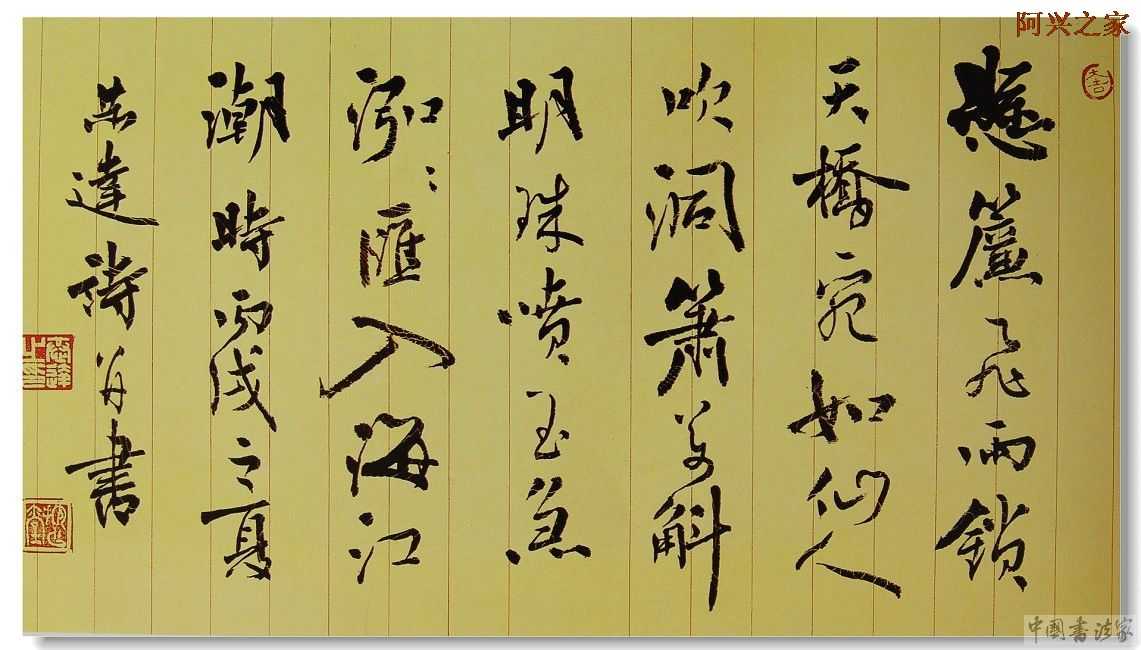 阿兴之家
懸簾飛雨鎖
天橋宛如仙人
吹洞簫萬斛
明珠噴玉急
泓〻匯入海江
潮時丙戌之夏
達詩并書
中國書法家